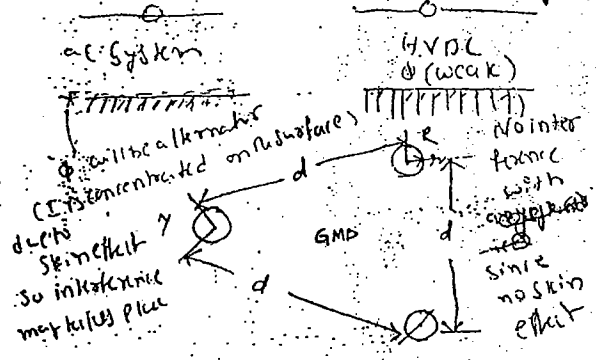 ac. System
H.V.D.C
ϕ (weak)
ϕ will be alternator
(I is concentrated on the surface)
due to
skin effect
so interference
may takes place
R
d
Y
GMD
d
d
No inter
ference
with
since
no skin
effect